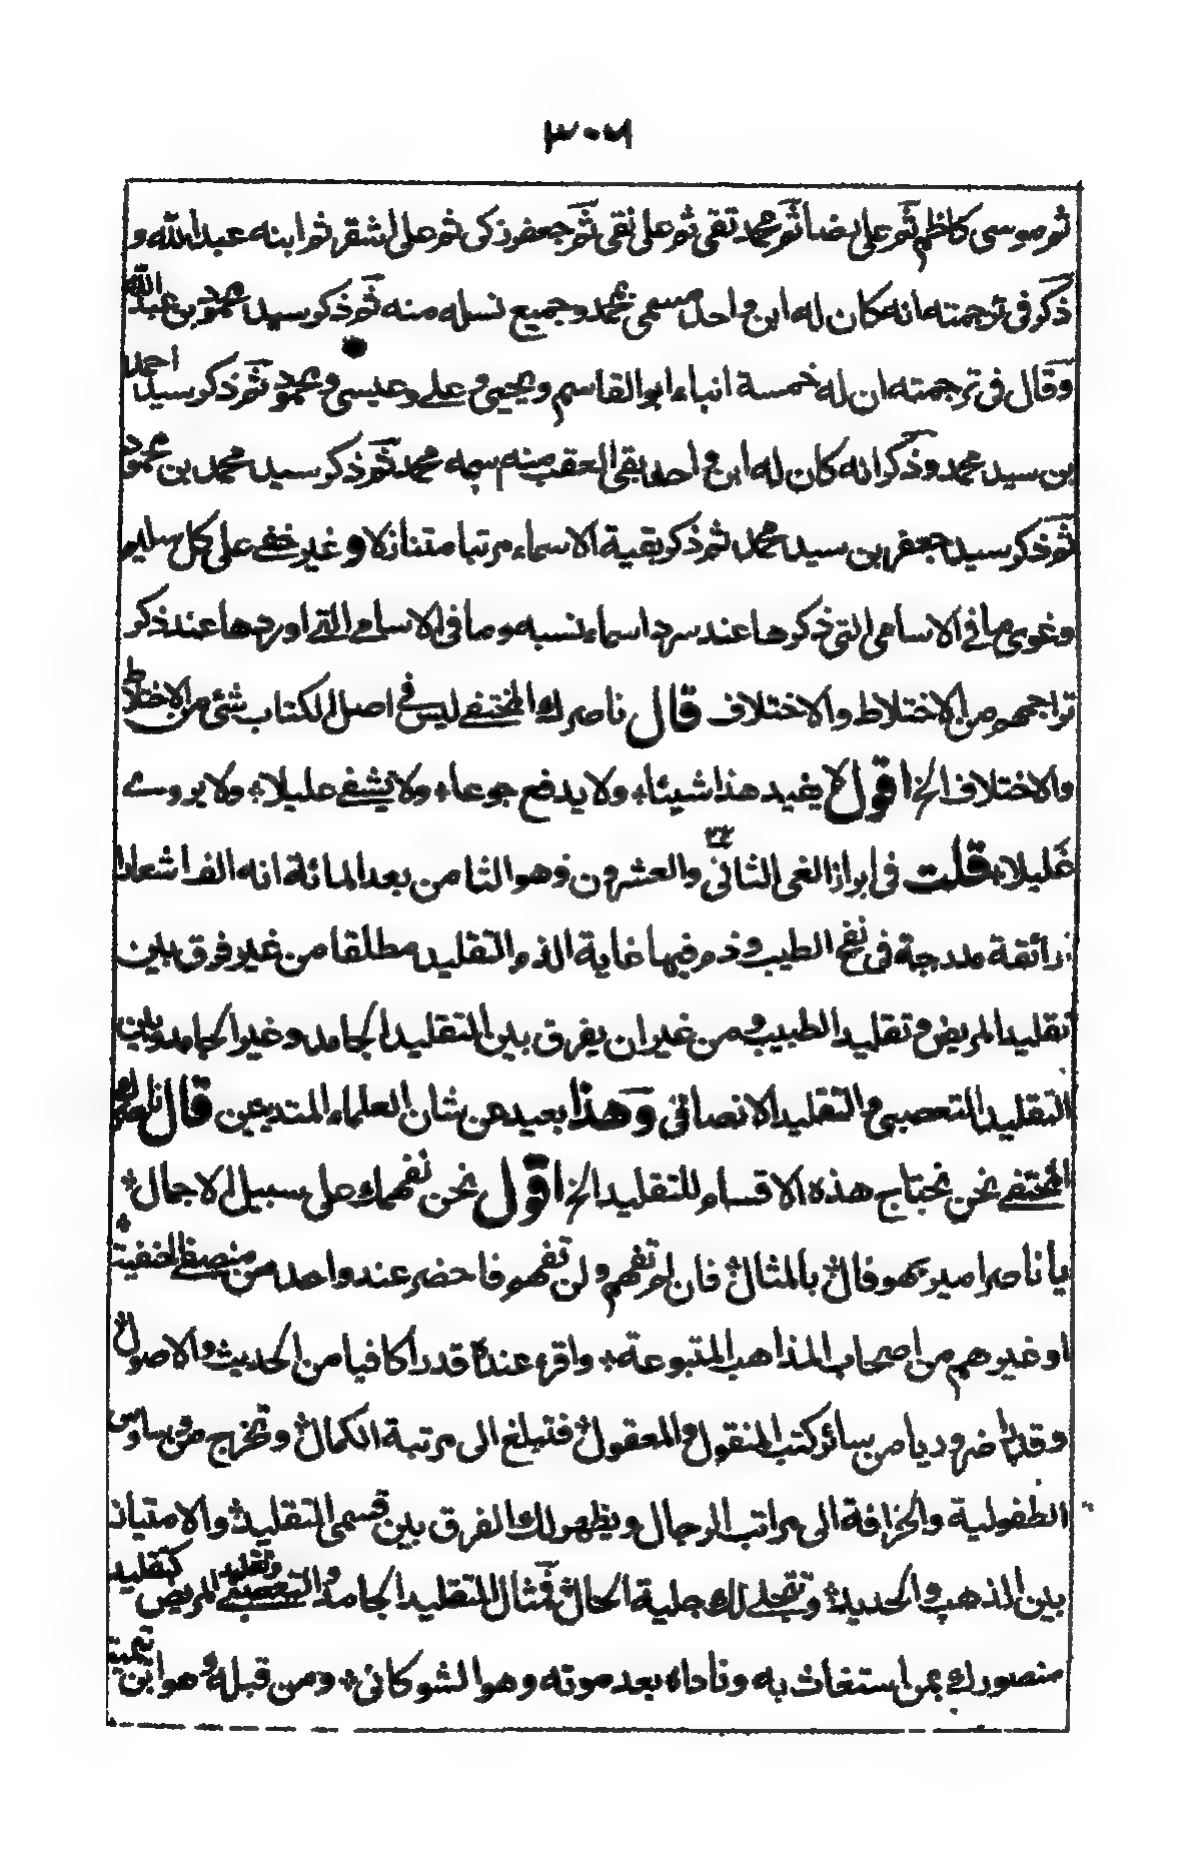 ٣٠٦
ثم موسى كاظم ثم على رضا ثم محمد تقى ثم على نقى ثم جعفر ذكى ثم على اشقر ثم ابنه عبد الله و
ذكر فى ترجمته انه كان له ابن واحد مسمى بمحمد وجميع نسله منه ثم ذكر سيد محمود بن عبد الله
وقال فى ترجمته ان له خمسة انباء ابو القاسم ويحيى وعلے وعيسى ومحمود ثم ذكر سيد احمد
بن سيد محمد وذكر انه كان له ابن واحد بقى العقب منه سمه محمد ثم ذكر سيد محمد بن محمود
ثم ذكر سيد جعفر بن سيد محمد ثم ذكر بقية الاسماء مرتبا متنازلا و غير خفے على كل سليم
وغوى ما فے الاسامى التى ذكرها عند سرد اسماء نسبه وما فى الاسامے التے اوردها عند ذكر
تراجمهم من الاختلاط والاختلاف قال ناصرك المختفے ليس فے اصل الكتاب شئ من الاختلاط
والاختلاف الخ اقول لا يفيد هذا شيئا، ولا يدفع جوعا، ولا يشفے عليلا، ولا يروے
غليلا، قلت فى ابراز الغى الثانى والعشرون وهو الثامن بعد المائة انه الف اشعارا
رائقة مدرجة فى نفح الطيب وذم فيها غاية الذم التقليد مطلقا من غير فرق بين
تقليد المريض وتقليد الطبيب ومن غير ان يفرق بين التقليد الجامد وغير الجامد وبين
التقليد التعصبى والتقليد الانصافى وهذا بعيد عن شان العلماء المتدينين قال ناصرك
المختفے نحن نحتاج هذه الاقسام للتقليد الخ اقول نحن نفهمك على سبيل الاجمال،
يا ناصرا مير بهوفال بالمثال فان لم تفهم ولن تفهم فاحضر عند واحد من منصفے الحنفية
او غيرهم من اصحاب المذاهب المتبوعة، واقرء عنده قدرا كافيا من الحديث والاصول
وقدرا ضروديا من سائر كتب المنقول والمعقول فتبلغ الى مرتبة الكمال وتخرج من وساوس
الطفولية والخرافة الى مراتب الرجال ويظهر لك الفرق بين قسمى التقليد والامتياز
بين الذهب والحديد وتتجلے لك جلية الحال فمثال التقليد الجامد والتعصبے وتقليد المريض كتقليد
منصورك بمن استغاث به وناداه بعد موته وهو الشوكانى، ومن قبله وهو ابن تيمية